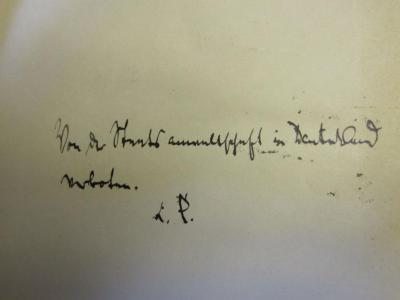 Von der Staatsanwaltschaft in Deutschland
verboten.
L. P.